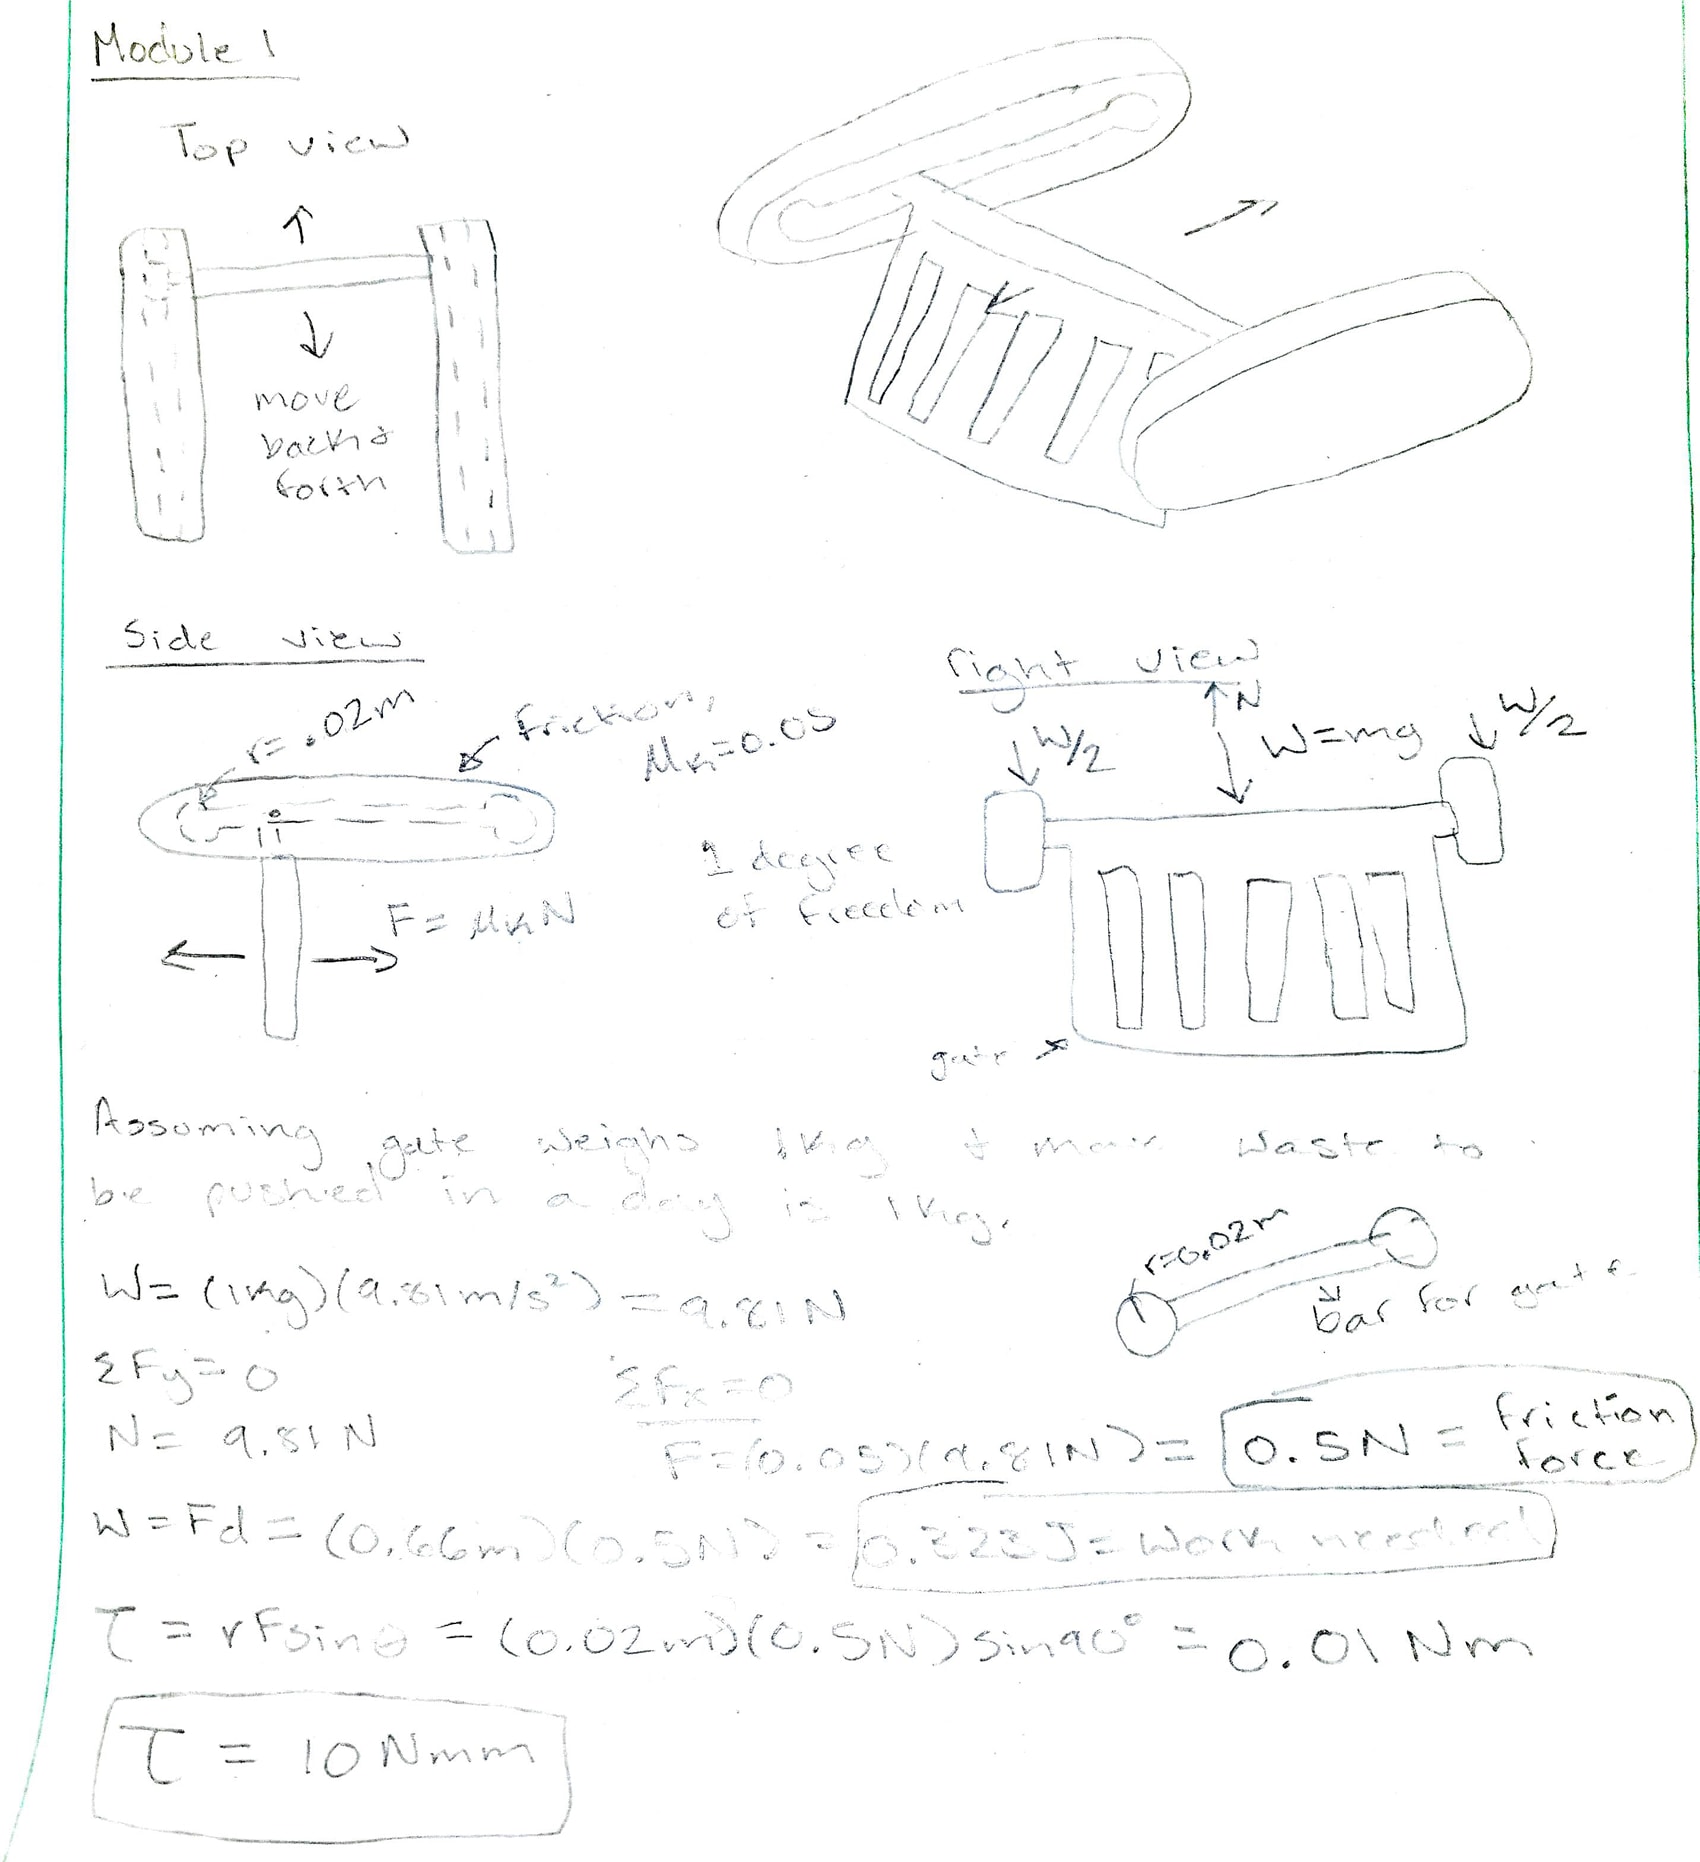 Module 1
Top view
move
back &
forth
Side view
r= .02m
friction,
μk=0.05
F = μkN
1 degree
of freedom
right view
N
W/2
W=mg
W/2
gate
Assuming gate weighs 1kg & max waste to
be pushed in a day is 1kg.
r=0.02m
bar for gate
W= (1kg)(9.81m/s²) = 9.81N
ΣFy= 0
ΣFx=0
N= 9.81N
F=(0.05)(9.81N)= 0.5N = friction
force
W=Fd= (0.66m)(0.5N) = 0.323J= Work needed
τ = rFsinθ = (0.02m)(0.5N)sin90° = 0.01 Nm
τ = 10 Nmm